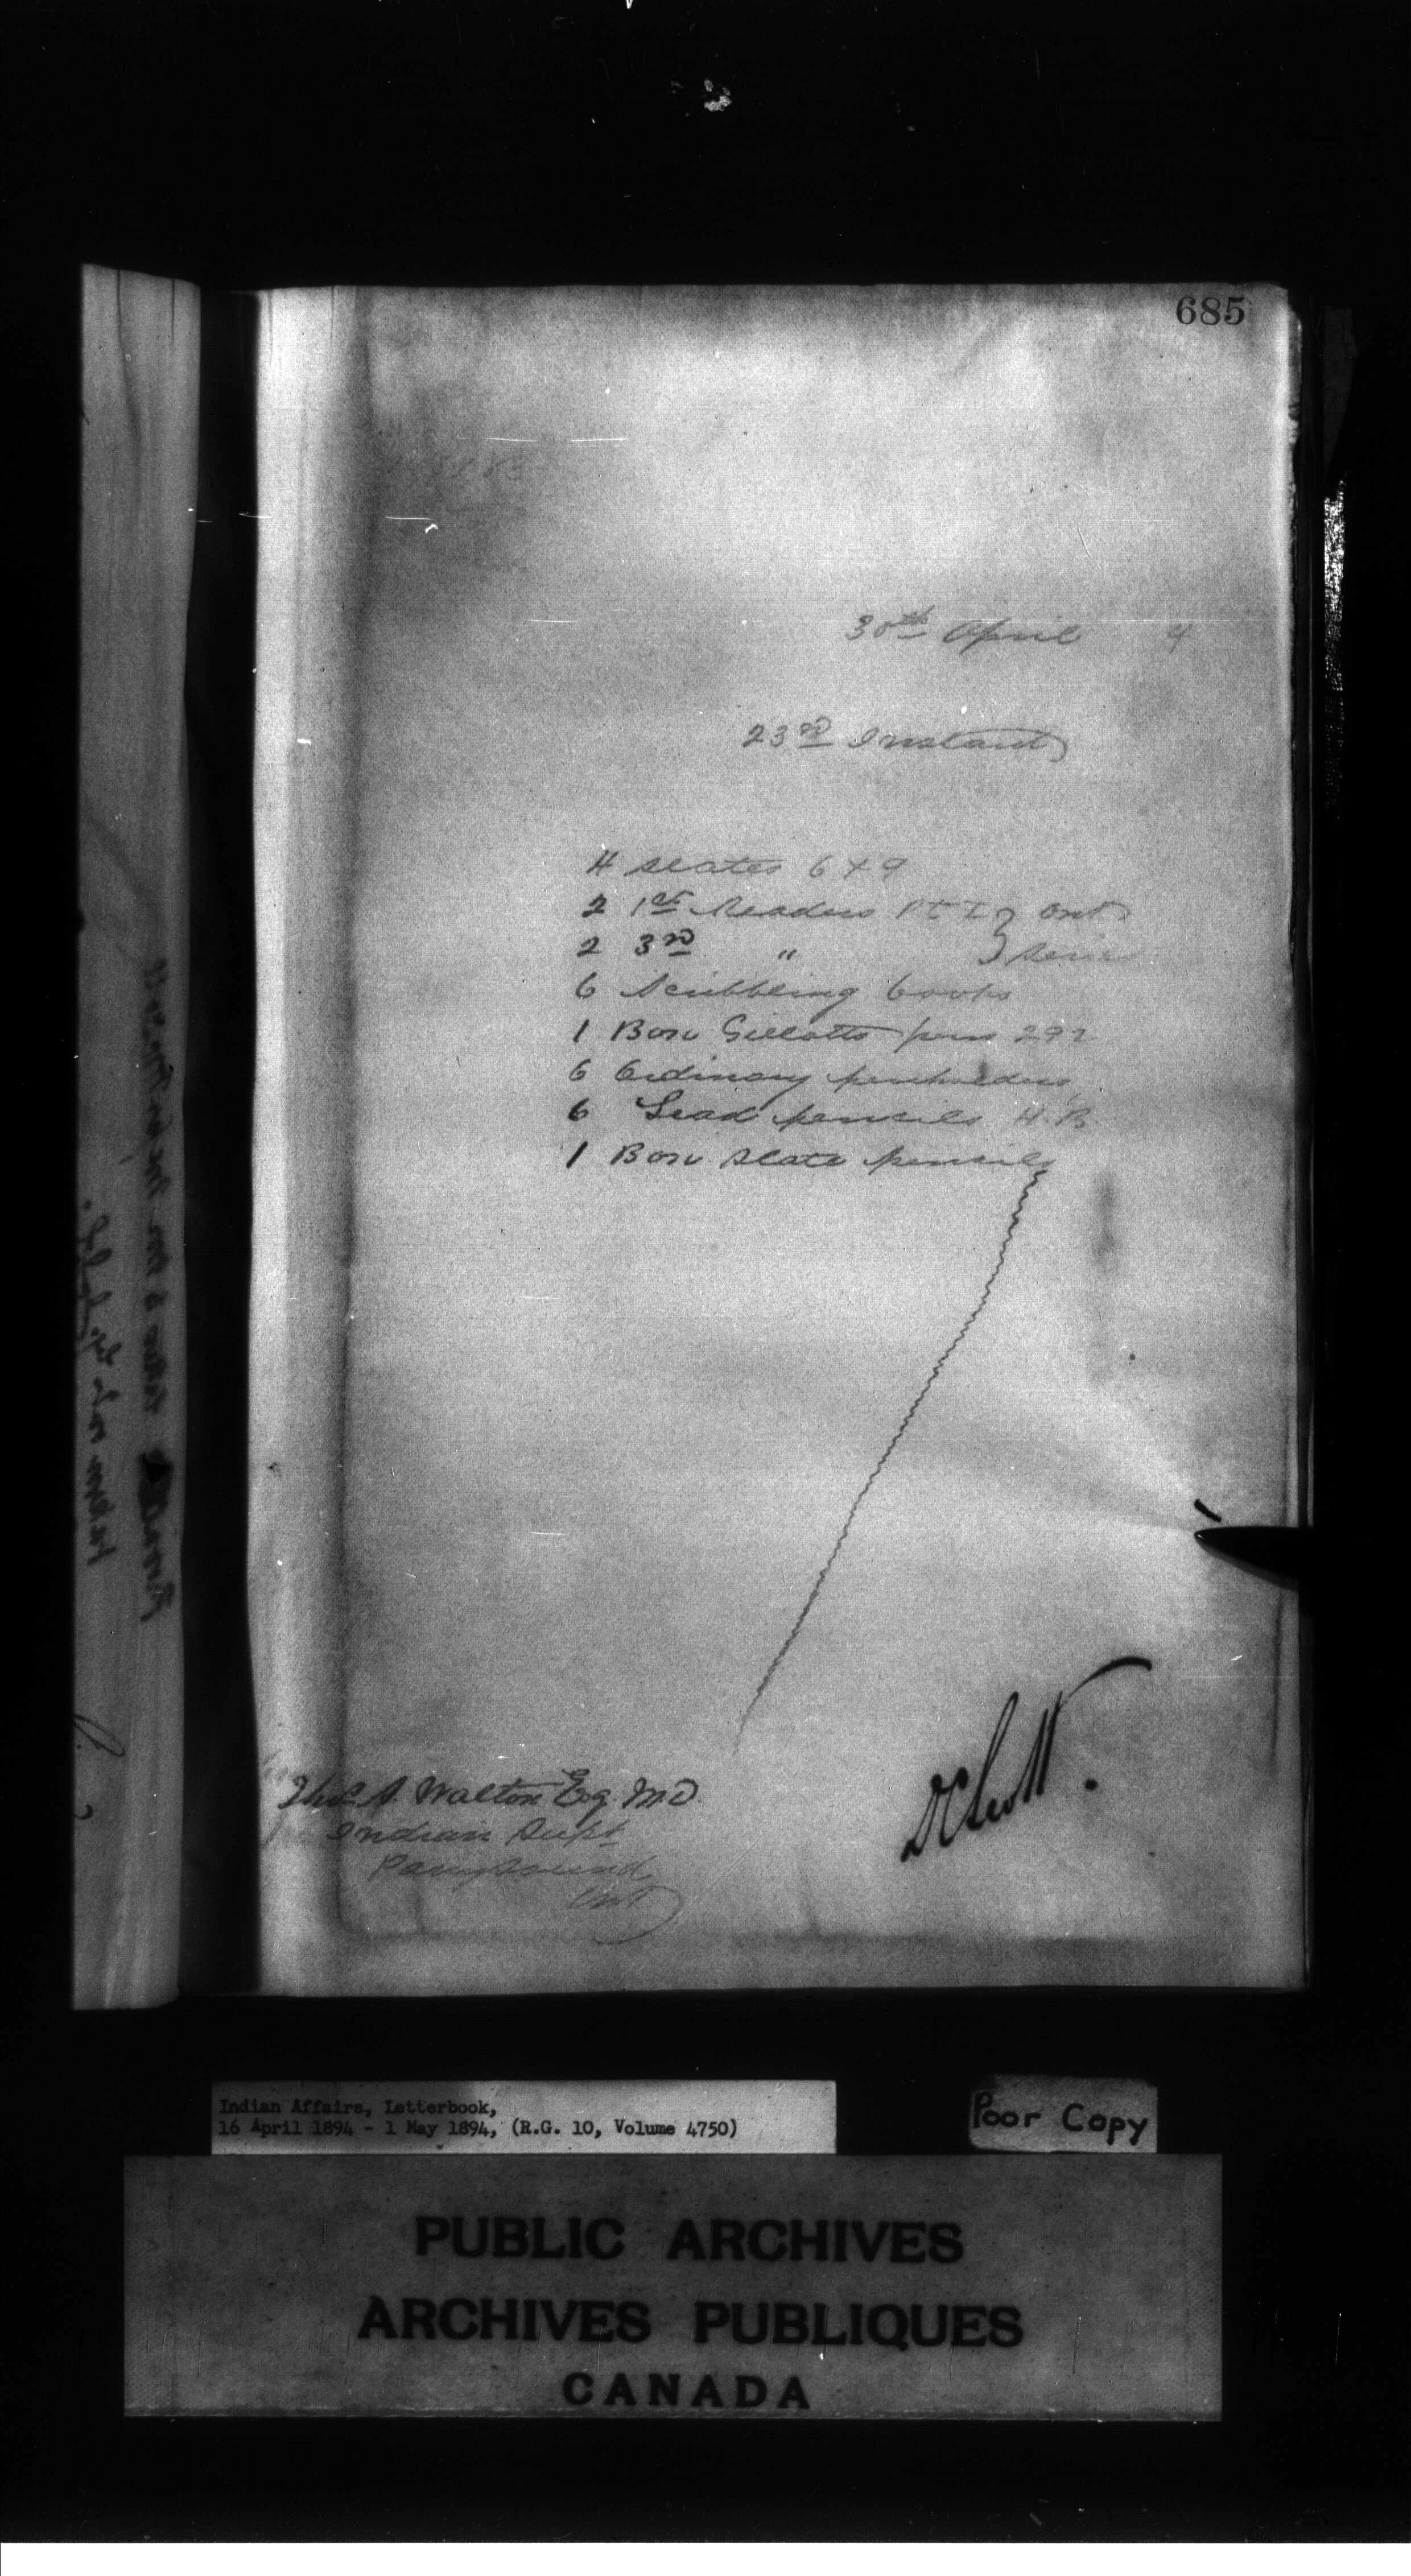 685
30th April 4
23rd Instant
4 Slates 6 x 9
2 1st Readers Pt I } Ont
2 3rd " } Series
6 Scribbling books
1 Box Gillotts pens 292
6 Ordinary penholders
6 Lead pencils H.B.
1 Box Slate pencils
DCScott.
Thos. S. Walton Esq. M.D.
Indian Supt
Parry Sound
Ont
Indian Affairs, Letterbook,
16 April 1894 - 1 May 1894, (R.G. 10, Volume 4750)
Poor Copy
PUBLIC ARCHIVES
ARCHIVES PUBLIQUES
CANADA